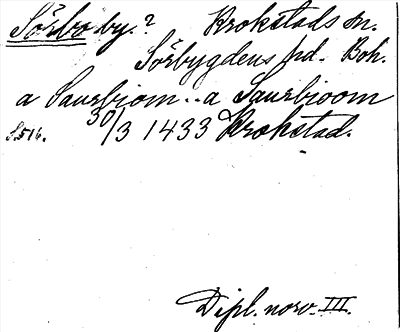 Sörbo by.? Krokstads sn.
Sörbygdens hd. Boh.
a Saurbiom .. a Saurbioom
S. 516. 30/3 1433 Krokstad.
Dipl. norv. III.